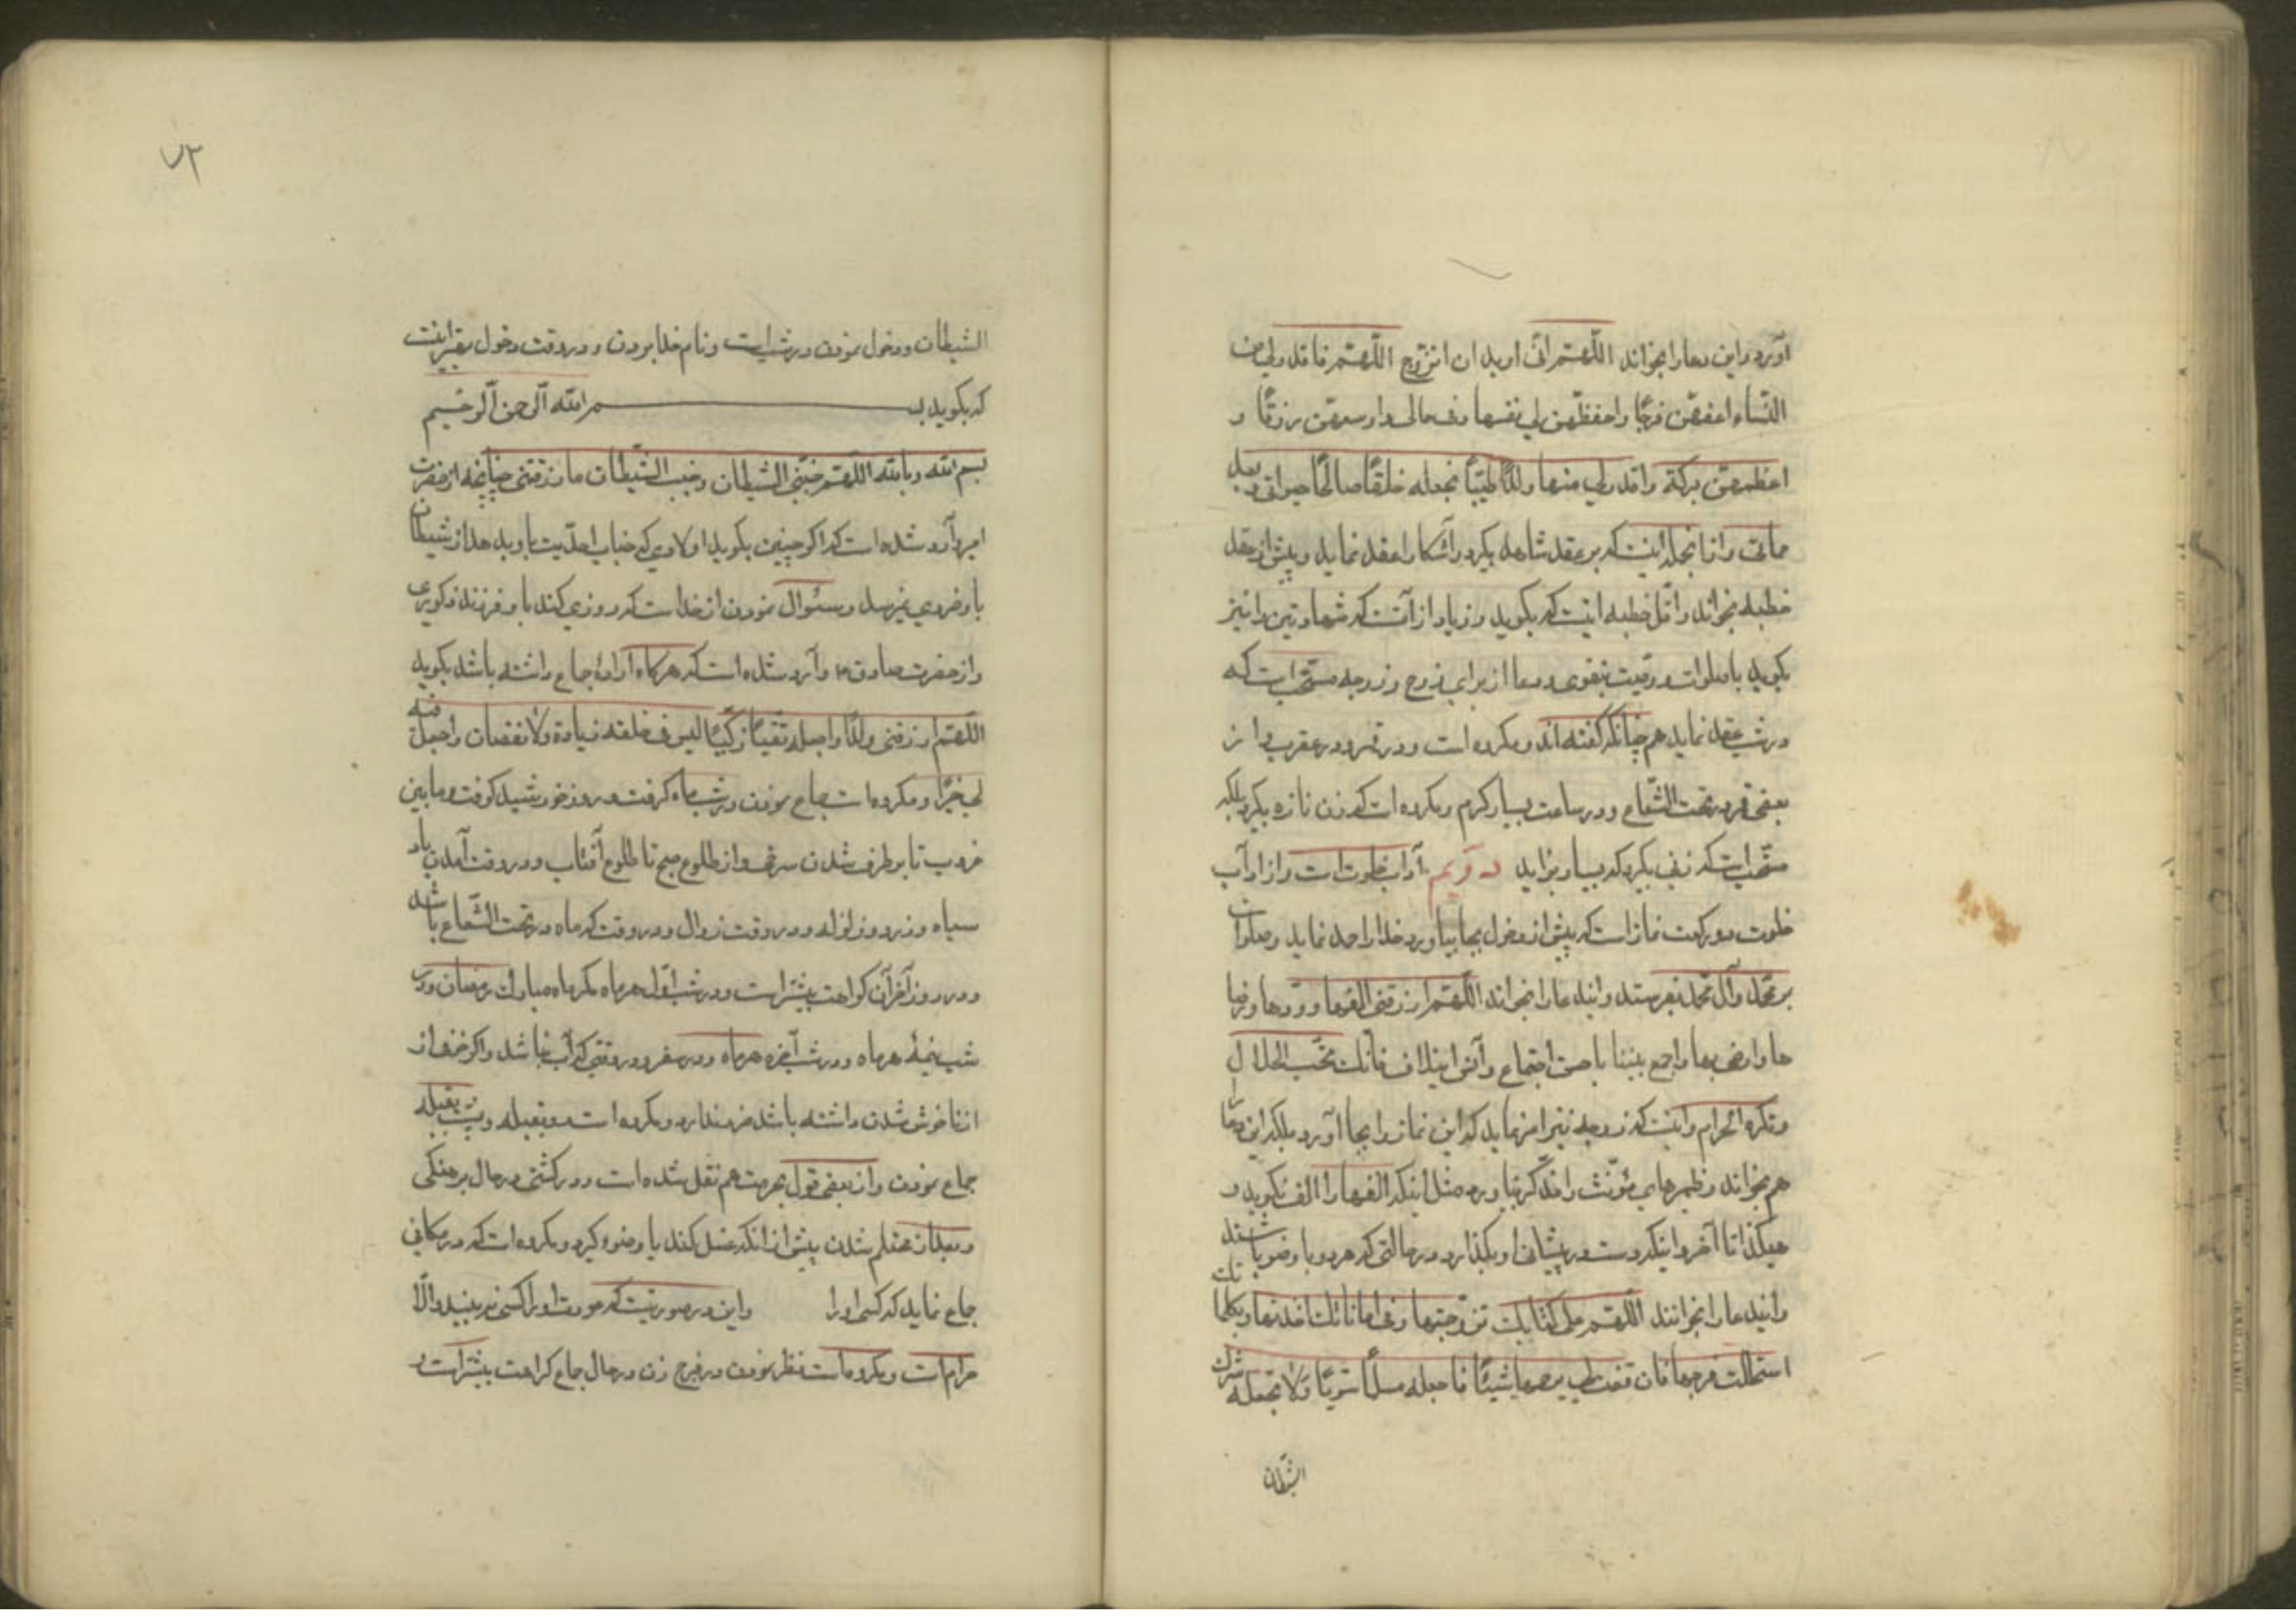 آورد و این دعا را بخواند اللّهمّ انّی ارید ان اتزوّج اللّهمّ فاقدر لی من
النّساء اعفهنّ فرجًا و احفظهنّ لی نفسها و فی مالی و اوسعهنّ رزقًا و
اعظمهنّ برکة و اقدر لی منها ولدًا طیّبًا تجعله خلقًا صالحًا فی حیوتی و بعد
مماتی و از انجمله اینست که بر عقد شاهد بگیرد و آشکارا عقد نماید و پیش از عقد
خطبه بخواند و اقل خطبه اینست که بگوید و زیاد از آنست که شهادتین را نیز
بگوید با صلوات و وصیت بتقوی و دعا از برای زوج و زوجه مستحب است که
در شب عقد نماید هم چنانکه گفته‌اند و مکروه است و در قمر در عقرب و از
بعضی قمر در تحت الشّعاع و در ساعت بسیار گرم و مکروه است که زن نازه بگیرد بلکه
مستحب است که زنی بگیرد که بسیار بزاید دویّم آداب خلوت است و از آداب
خلوت دو رکعت نماز است که پیش از دخول بجا بیاورد خدا را حمد نماید و صلوات
بر محمّد و آل محمّد بفرستد و ایندعا را بخواند اللّهمّ ارزقنی الفها و ودّها و رضا
ها و ارضنی بها و اجمع بیننا باحسن اجتماع و آنس ایتلاف فانّک تحبّ الحلال
و تکره الحرام و اینست که زوجه نیز امر نماید که این نماز را بجا آورد بلکه این دعا را
هم بخواند و ضمیرهای مؤنّث را مذکّر بیاورد مثل اینکه الفها را الفه بگوید و
هیکذا تا آخر و اینکه دست در پیشانی او بگذارد در حالتی که هر دو با وضو باشند
و ایندعا را بخوانند اللّهمّ علی کتابک تزوّجتها و فی امانتک اخذتها و بکلماتک
استحللت فرجها فان قضیت لی فی رحمها شیئًا فاجعله مسلمًا سویًّا و لا تجعله شرک
الشیطان
٧٢
الشیطان و دخول نمودن در شب است و نام خدا بردن و در وقت دخول بقراینت
که بگوید بسم الله الرّحمن الرّحیم
بسم الله و بالله اللّهمّ جنّبنی الشّیطان و جنّب الشّیطان ما رزقتنی چنانچه از حضرت
امیر وارد شده است که اگر چنین بگوید اولادی که جناب احدّیت باو بدهد از شیطان
باو ضرری نمیرسد و سئوال نمودن از خدا است که روزی کند باو فرزند ذکوری
و از حضرت صادق ع وارد شده است که هرگاه ارادهٔ جماع داشته باشد بگوید
اللّهمّ ارزقنی ولدًا و اجعله تقیًّا زکیًّا لیس فی خلقه زیادة و لا نقصان و اجعل عاقبته
الی خیر و مکروهات جماع نمودن در شب ماه گرفت و روز خورشید گرفت و مابین
غروب تا برطرف شدن سرخی و از طلوع صبح تا طلوع آفتاب و در وقت آمدن باد
سیاه و زرد و زلزله و در وقت زوال و در وقت که ماه در تحت الشّعاع باشد
و در روز آخر آن کراهت بیشتر است و در شب اوّل هر ماه مگر ماه مبارک رمضان و در
شب نیمهٔ هر ماه و در شب آخره هر ماه و در سفر در وقتی که آب نباشد و اگر خوف از
ناخوش شدن داشته باشد ضرر ندارد و مکروه است رو بقبله و پشت بقبله
جماع نمودن و از بعضی قول بحرمت هم نقل شده است و در کشتی در حال برهنگی
و بعد از محتلم شدن پیش از انکه غسل کند یا وضو گیرد و مکروه است که در مکانی
جماع نماید که کسی او را و این در صورتیست که عورت او را کسی نه بیند و الّا
حرام است و مکروهست نظر نمودن در فرج زن در حال جماع کراهت بیشتر است و